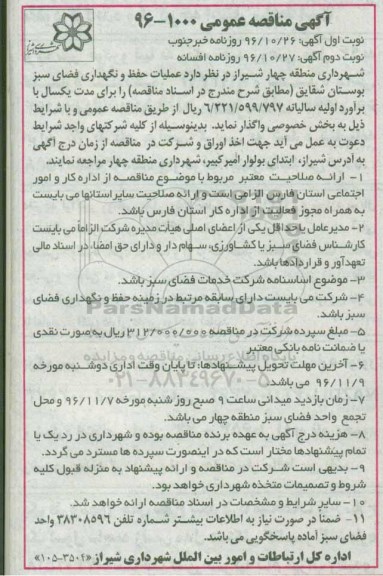 آگهی مناقصه عمومی ۱۰۰۰-۹۶
نوبت اول آگهی: ۹۶/۱۰/۲۶ روزنامه خبرجنوب
نوبت دوم آگهی: ۹۶/۱۰/۲۷ روزنامه افسانه
شهرداری منطقه چهار شیراز در نظر دارد عملیات حفظ و نگهداری فضای سبز
بوستان شقایق (مطابق شرح مندرج در اسناد مناقصه) را برای مدت یکسال با
برآورد اولیه سالیانه ۶/۲۲۱/۵۹۹/۷۹۷ ریال از طریق مناقصه عمومی و با شرایط
ذیل به بخش خصوصی واگذار نماید. بدینوسیله از کلیه شرکتهای واجد شرایط
دعوت به عمل می آید جهت اخذ اوراق و شرکت در مناقصه از زمان درج آگهی
به آدرس شیراز، ابتدای بولوار امیرکبیر، شهرداری منطقه چهار مراجعه نمایند.
۱- ارائه صلاحیت معتبر مربوط با موضوع مناقصه از اداره کار و امور
اجتماعی استان فارس الزامی است و ارائه صلاحیت سایر استانها می بایست
به همراه مجوز فعالیت از اداره کار استان فارس باشد.
۲- مدیرعامل یا حداقل یکی از اعضای اصلی هیأت مدیره شرکت الزاماً می بایست
کارشناس فضای سبز یا کشاورزی، سهام دار و دارای حق امضا، در اسناد مالی
تعهدآور و قراردادها باشد.
۳- موضوع اساسنامه شرکت خدمات فضای سبز باشد.
۴- شرکت می بایست دارای سابقه مرتبط در زمینه حفظ و نگهداری فضای
سبز باشد.
۵- مبلغ سپرده شرکت در مناقصه ۳۱۲/۰۰۰/۰۰۰ ریال به صورت نقدی
یا ضمانت نامه بانکی معتبر
۶- آخرین مهلت تحویل پیشنهادها: تا پایان وقت اداری دوشنبه مورخه
۹۶/۱۱/۹ می باشد.
۷- زمان بازدید میدانی ساعت ۹ صبح روز شنبه مورخه ۹۶/۱۱/۷ و محل
تجمع واحد فضای سبز منطقه چهار می باشد.
۸- هزینه درج آگهی به عهده برنده مناقصه بوده و شهرداری در رد یک یا
تمام پیشنهادها مختار است که در اینصورت سپرده ها مسترد می گردد.
۹- بدیهی است شرکت در مناقصه و ارائه پیشنهاد به منزله قبول کلیه
شروط و تصمیمات متخذه شهرداری خواهد بود.
۱۰- سایر شرایط و مشخصات در اسناد مناقصه ارائه خواهد شد.
۱۱- ضمناً در صورت نیاز به اطلاعات بیشتر شماره تلفن ۳۸۳۰۸۵۹۶ واحد
فضای سبز آماده پاسخگویی می باشد.
اداره کل ارتباطات و امور بین الملل شهرداری شیراز «۳۵۰۲-۱۰۵»
ParsNamadData
پایگاه اطلاع رسانی مناقصه و مزایده
۰۲۱-۸۸۳۴۹۶۷۰-۵